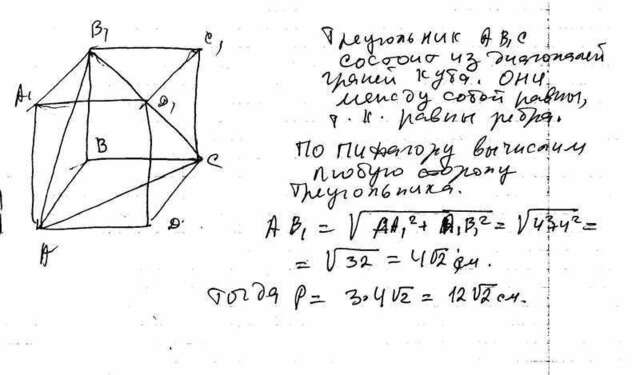 B₁
C₁
A₁
D₁
B
C
D
A
Треугольник AB₁C
состоит из диагоналей
граней куба. Они
между собой равны,
т.к. равны ребра.
По Пифагору вычислим
любую сторону
треугольника.
AB₁ = √AA₁² + A₁B₁² = √4²+4² =
= √32 = 4√2 см.
Тогда P = 3·4√2 = 12√2 см.